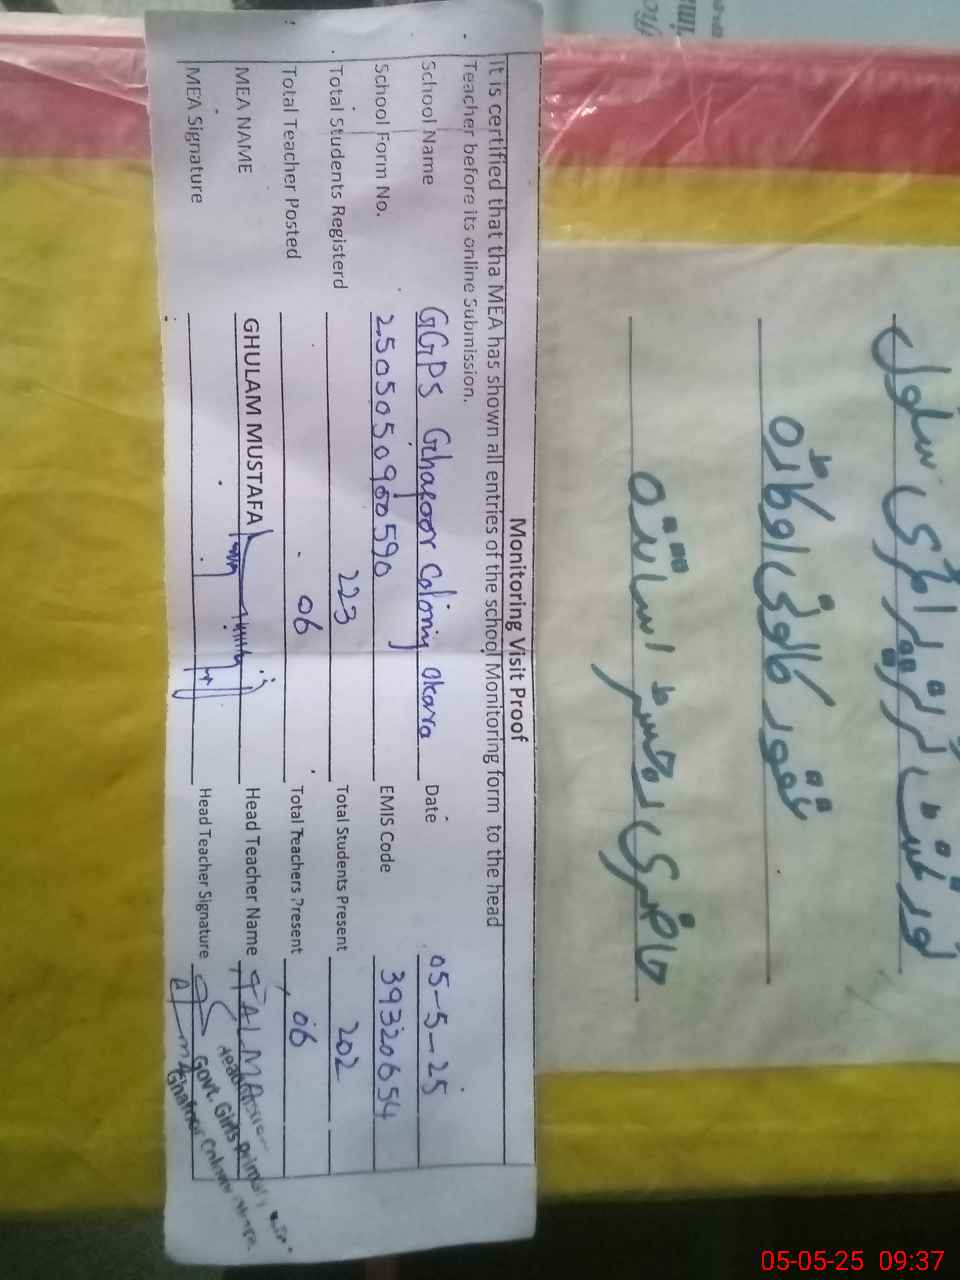 Monitoring Visit Proof
It is certified that tha MEA has shown all entries of the school Monitoring form to the head
Teacher before its online Submission.
School Name GGPS Ghafoor Colony Okara Date 05-5-25
School Form No. 2505050900590 EMIS Code 39320654
Total Students Registerd 223 Total Students Present 202
Total Teacher Posted 06 Total Teachers Present 06
MEA NAME GHULAM MUSTAFA Head Teacher Name
MEA Signature Head Teacher Signature
Govt. Girls
گورنمنٹ گرلز پرائمری سکول
غفور کالونی اوکاڑہ
حاضری رجسٹر اساتذہ
05-05-25 09:37